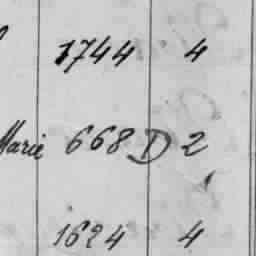 1744 4
Marie 668 D 2
1624 4